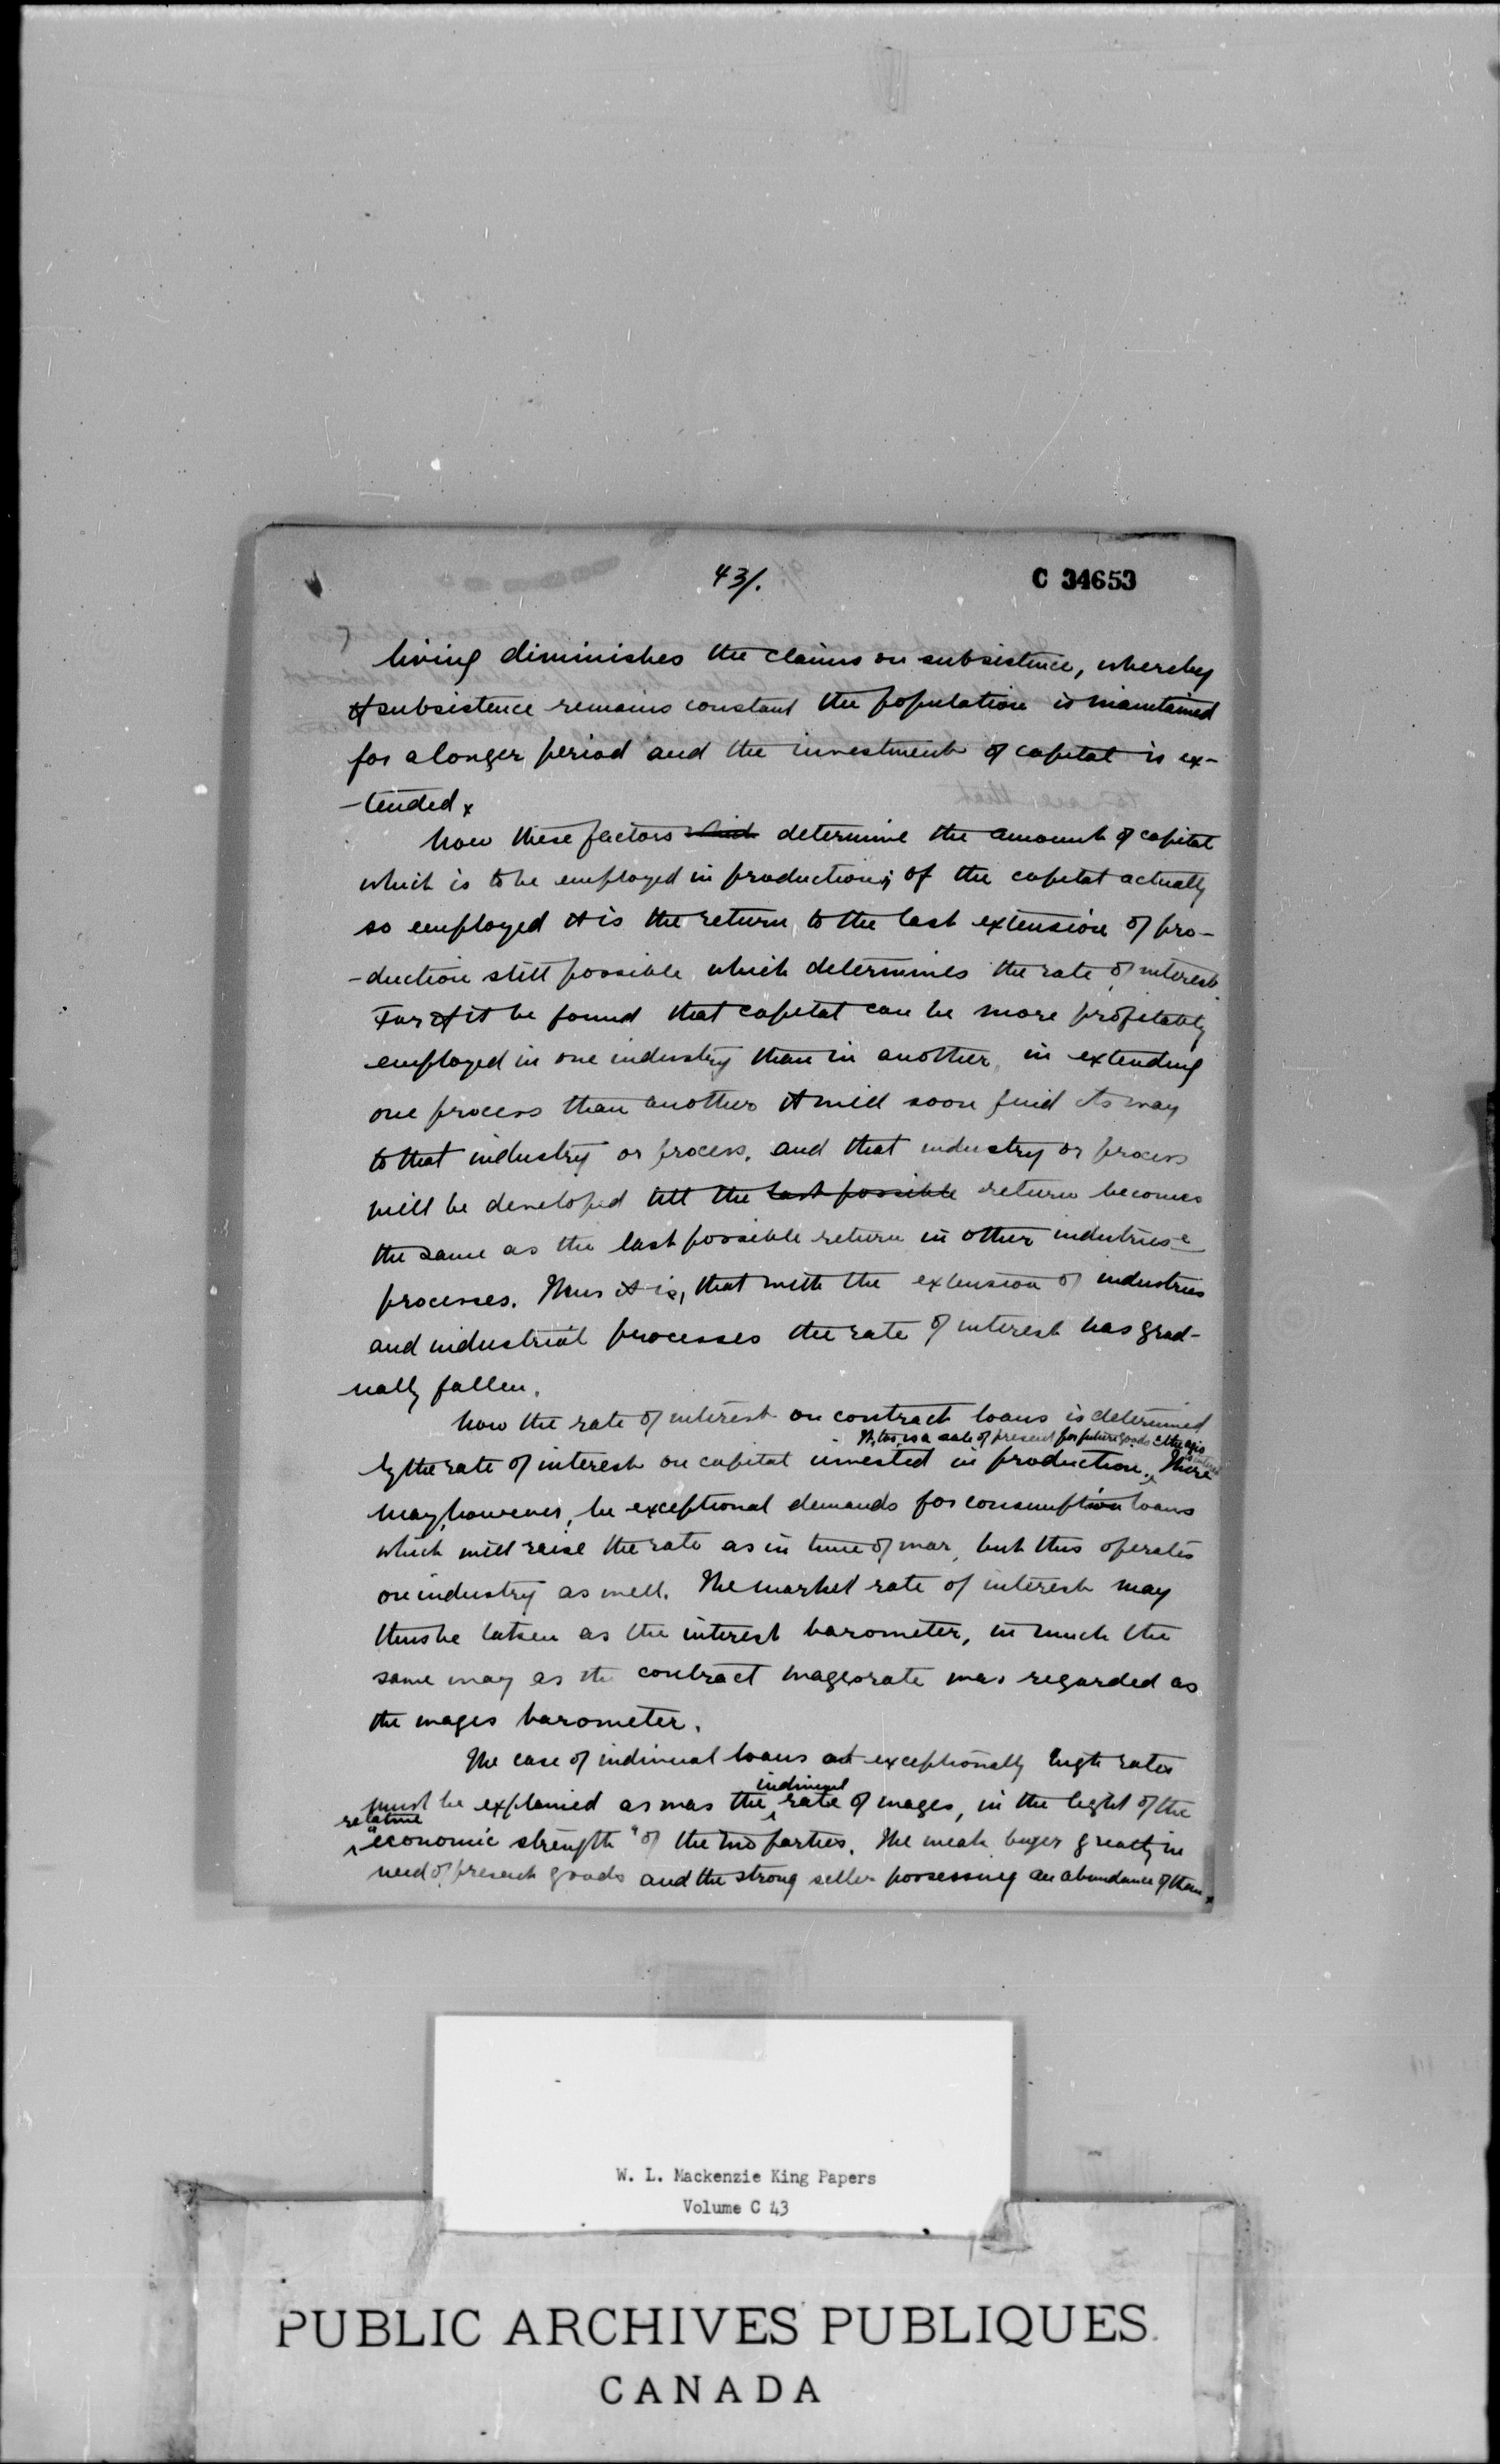 43/.
C 34653
living diminishes the claims on subsistence, whereby
if subsistence remains constant the population is maintained
for a longer period and the investment of capital is ex-
-tended.
Now these factors which determine the amount of capital
which is to be employed in production; of the capital actually
so employed it is the return to the last extension of pro-
-duction still possible which determines the rate of interest.
For if it be found that capital can be more profitably
employed in one industry than in another, in extending
one process than another it will soon find its way
to that industry or process, and that industry or process
will be developed till the last possible return becomes
the same as the last possible return in other industries &
processes. Thus it is, that with the extension of industries
and industrial processes the rate of interest has grad-
ually fallen.
Now the rate of interest on contract loans is determined
It, too, is a sale of present for future goods & the agio
by the rate of interest on capital invested in production. There
may, however, be exceptional demands for consumption loans
which will raise the rate as in time of war, but this operates
on industry as well. The market rate of interest may
thus be taken as the interest barometer, in much the
same way as the contract wages rate was regarded as
the wages barometer.
The case of individual loans at exceptionally high rates
individual
must be explained as was the rate of wages, in the light of the
relative
"economic strength" of the two parties. The weak buyer greatly in
need of present goods and the strong seller possessing an abundance of them
W. L. Mackenzie King Papers
Volume C 43
PUBLIC ARCHIVES PUBLIQUES
CANADA